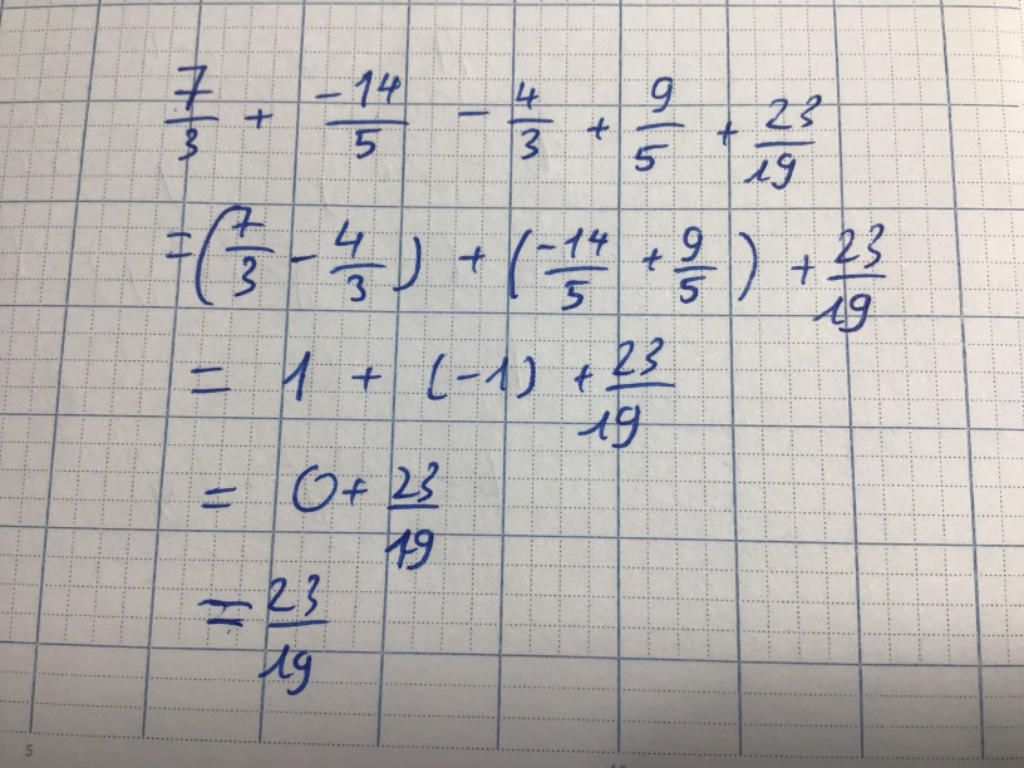 7/3 + -14/5 - 4/3 + 9/5 + 23/19
= (7/3 - 4/3) + (-14/5 + 9/5) + 23/19
= 1 + (-1) + 23/19
= 0 + 23/19
= 23/19
5